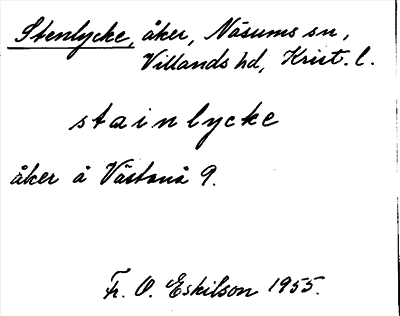 Stenlycke, åker, Näsums sn,
Villands hd, Krist. l.
stainlycke
åker å Västanå 9.
Fr. O. Eskilson 1955.